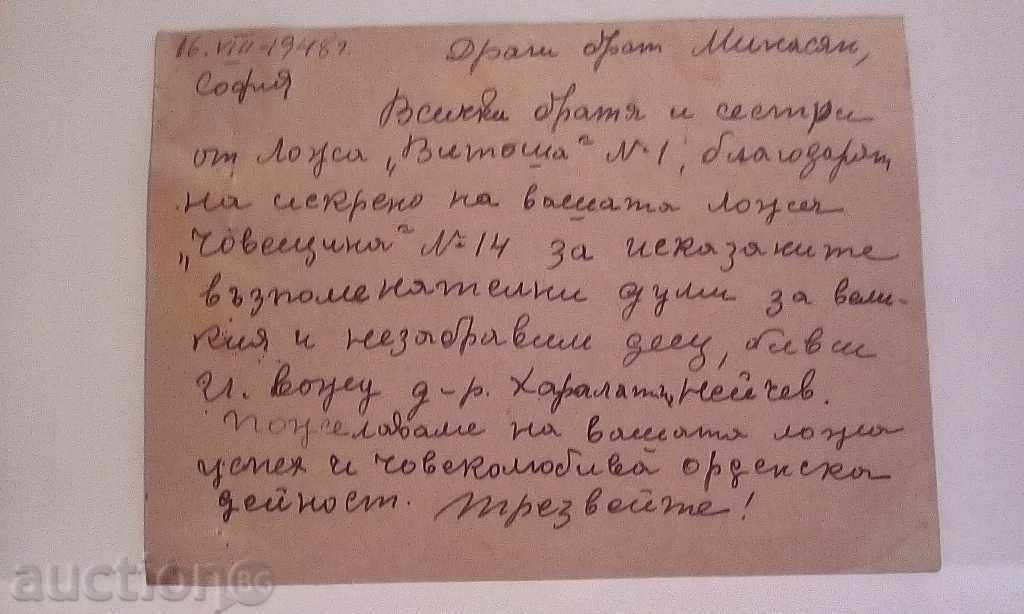 16.VIII-1948 г. Драги брат Минасян,
София
Всички братя и сестри
от Ложа „Витоша“ № 1, благодарят
на искрено на вашата ложа
„Човещина“ № 14 за исказаните
възпоменателни думи за вели-
кия и незабравим деец, бивш
И. вожд д-р. Харалампи Нейчев.
Пожелаваме на вашата ложа
успех и човеколюбива орденска
дейност. Трезвейте!
auction BG